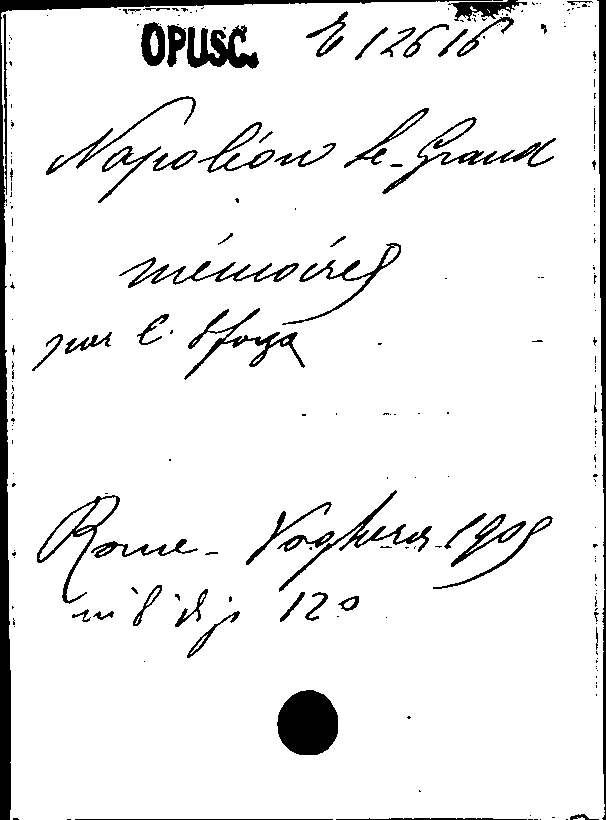 OPUSC. E 12616
Napoléon le-Grand
mémoires
par C. Sforza
Rome - Voghera 1909
in 8° di p. 120